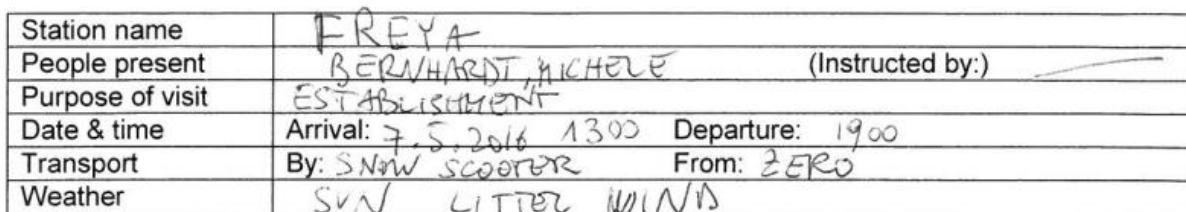 Station name FREYA
People present BERNHARDT, MICHELE (Instructed by:)
Purpose of visit ESTABLISHMENT
Date & time Arrival: 7.5.2016 1300 Departure: 1900
Transport By: SNOW SCOOTER From: ZERO
Weather SUN LITTEL WIND